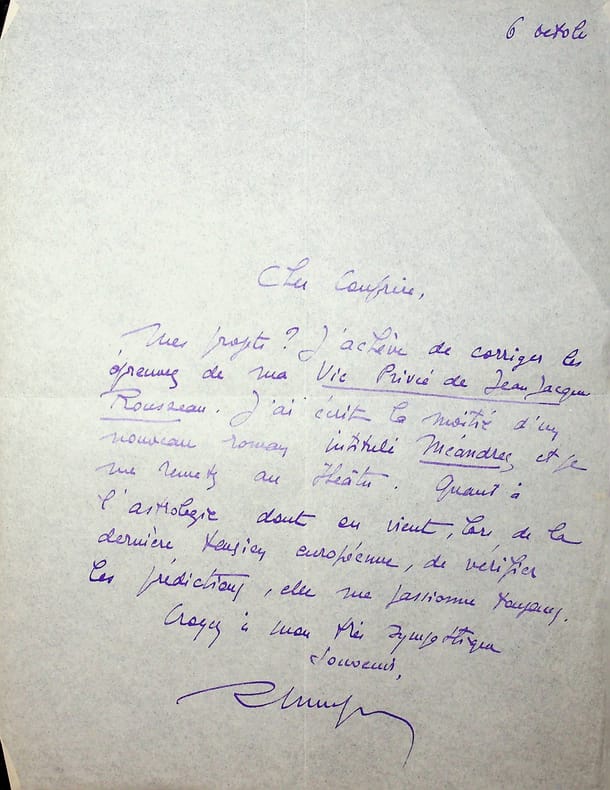 6 octobre
Cher Confrère,
Mes projets ? J'achève de corriger les
épreuves de ma Vie Privée de Jean Jacques
Rousseau. J'ai écrit la moitié d'un
nouveau roman intitulé Méandres et je
me remets au théâtre. Quant à
l'astrologie dont on vient, lors de la
dernière tension européenne, de vérifier
les prédictions, elle me passionne toujours.
Croyez à mon très sympathique
souvenir,